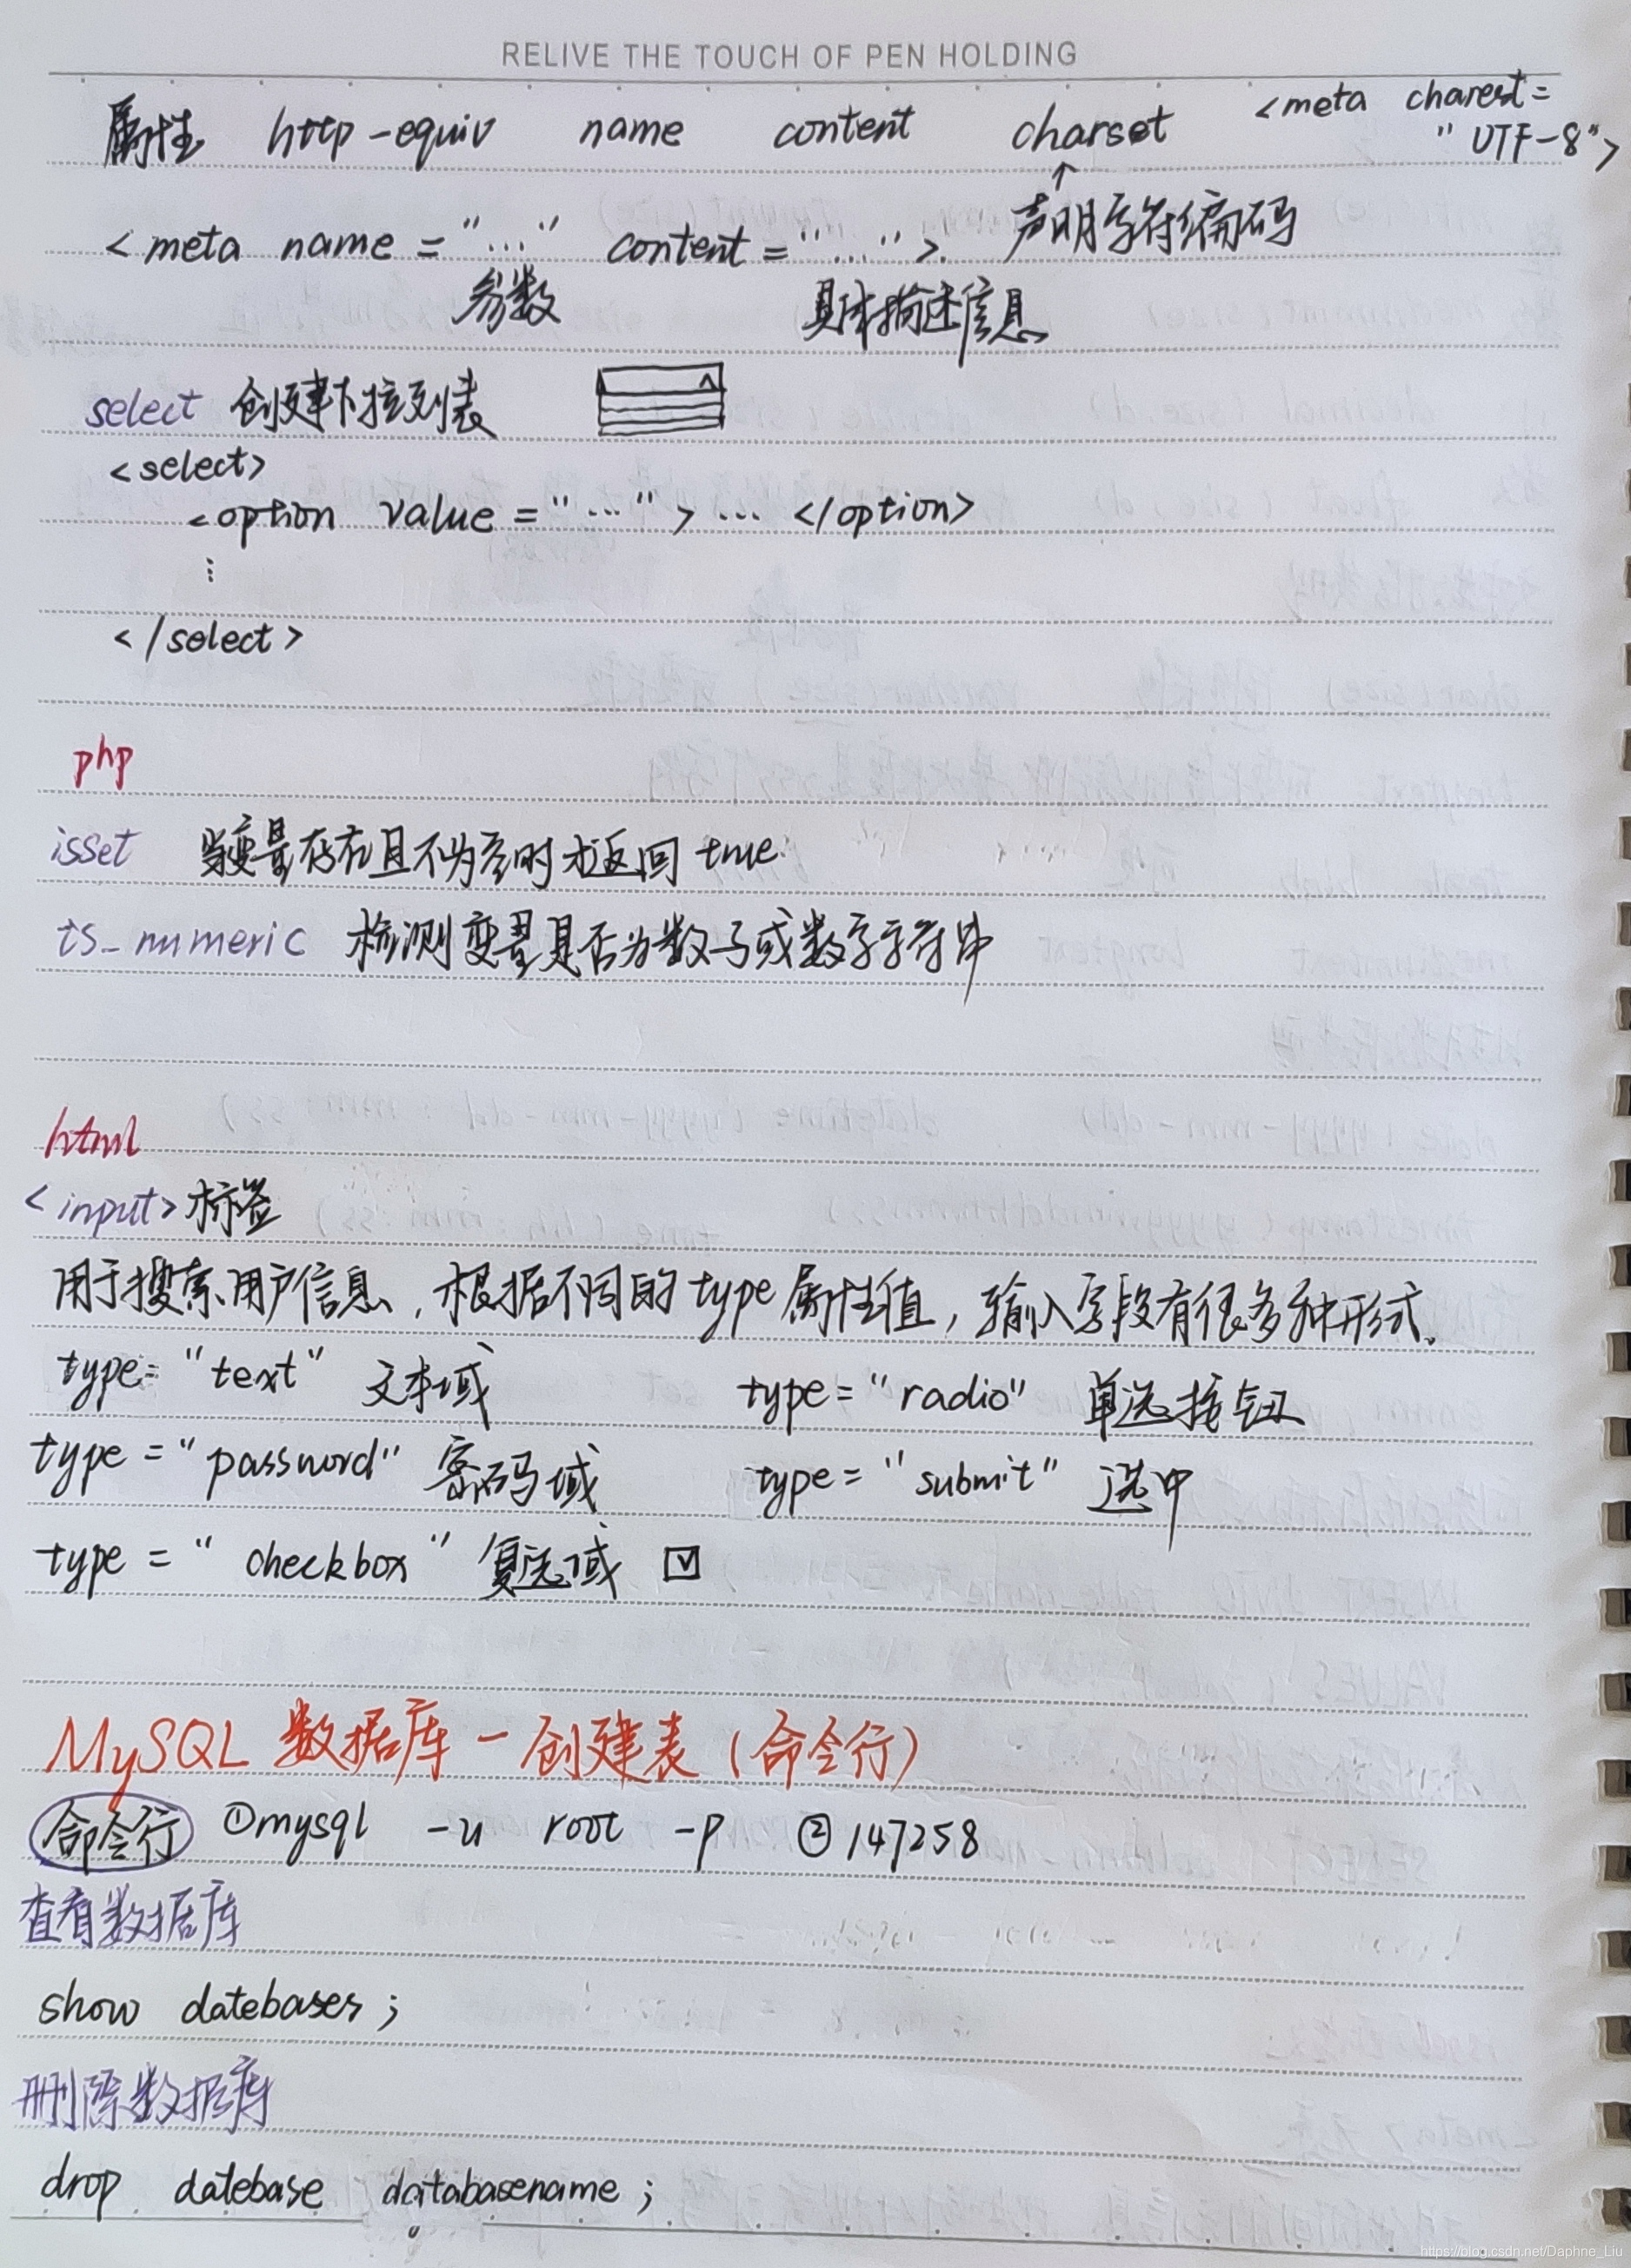 RELIVE THE TOUCH OF PEN HOLDING
属性 http-equiv name content charset <meta charest=
"UTF-8">
↑
<meta name="..." content="...">. 声明字符编码
参数 具体描述信息
select 创建下拉列表
<select>
<option value="...">... </option>
⋮
</select>
php
isset 当变量存在且不为空时才返回 true.
is_numeric 检测变量是否为数字或数字字符串
html
<input>标签
用于搜索用户信息,根据不同的type属性值,输入字段有很多种形式。
type="text" 文本域 type="radio" 单选按钮
type="password" 密码域 type="submit" 选中
type="checkbox" 复选域 ☑
MySQL 数据库-创建表(命令行)
命令行 ①mysql -u root -p ②147258
查看数据库
show datebases;
删除数据库
drop datebase databasename;
https://blog.csdn.net/Daphne_Liu